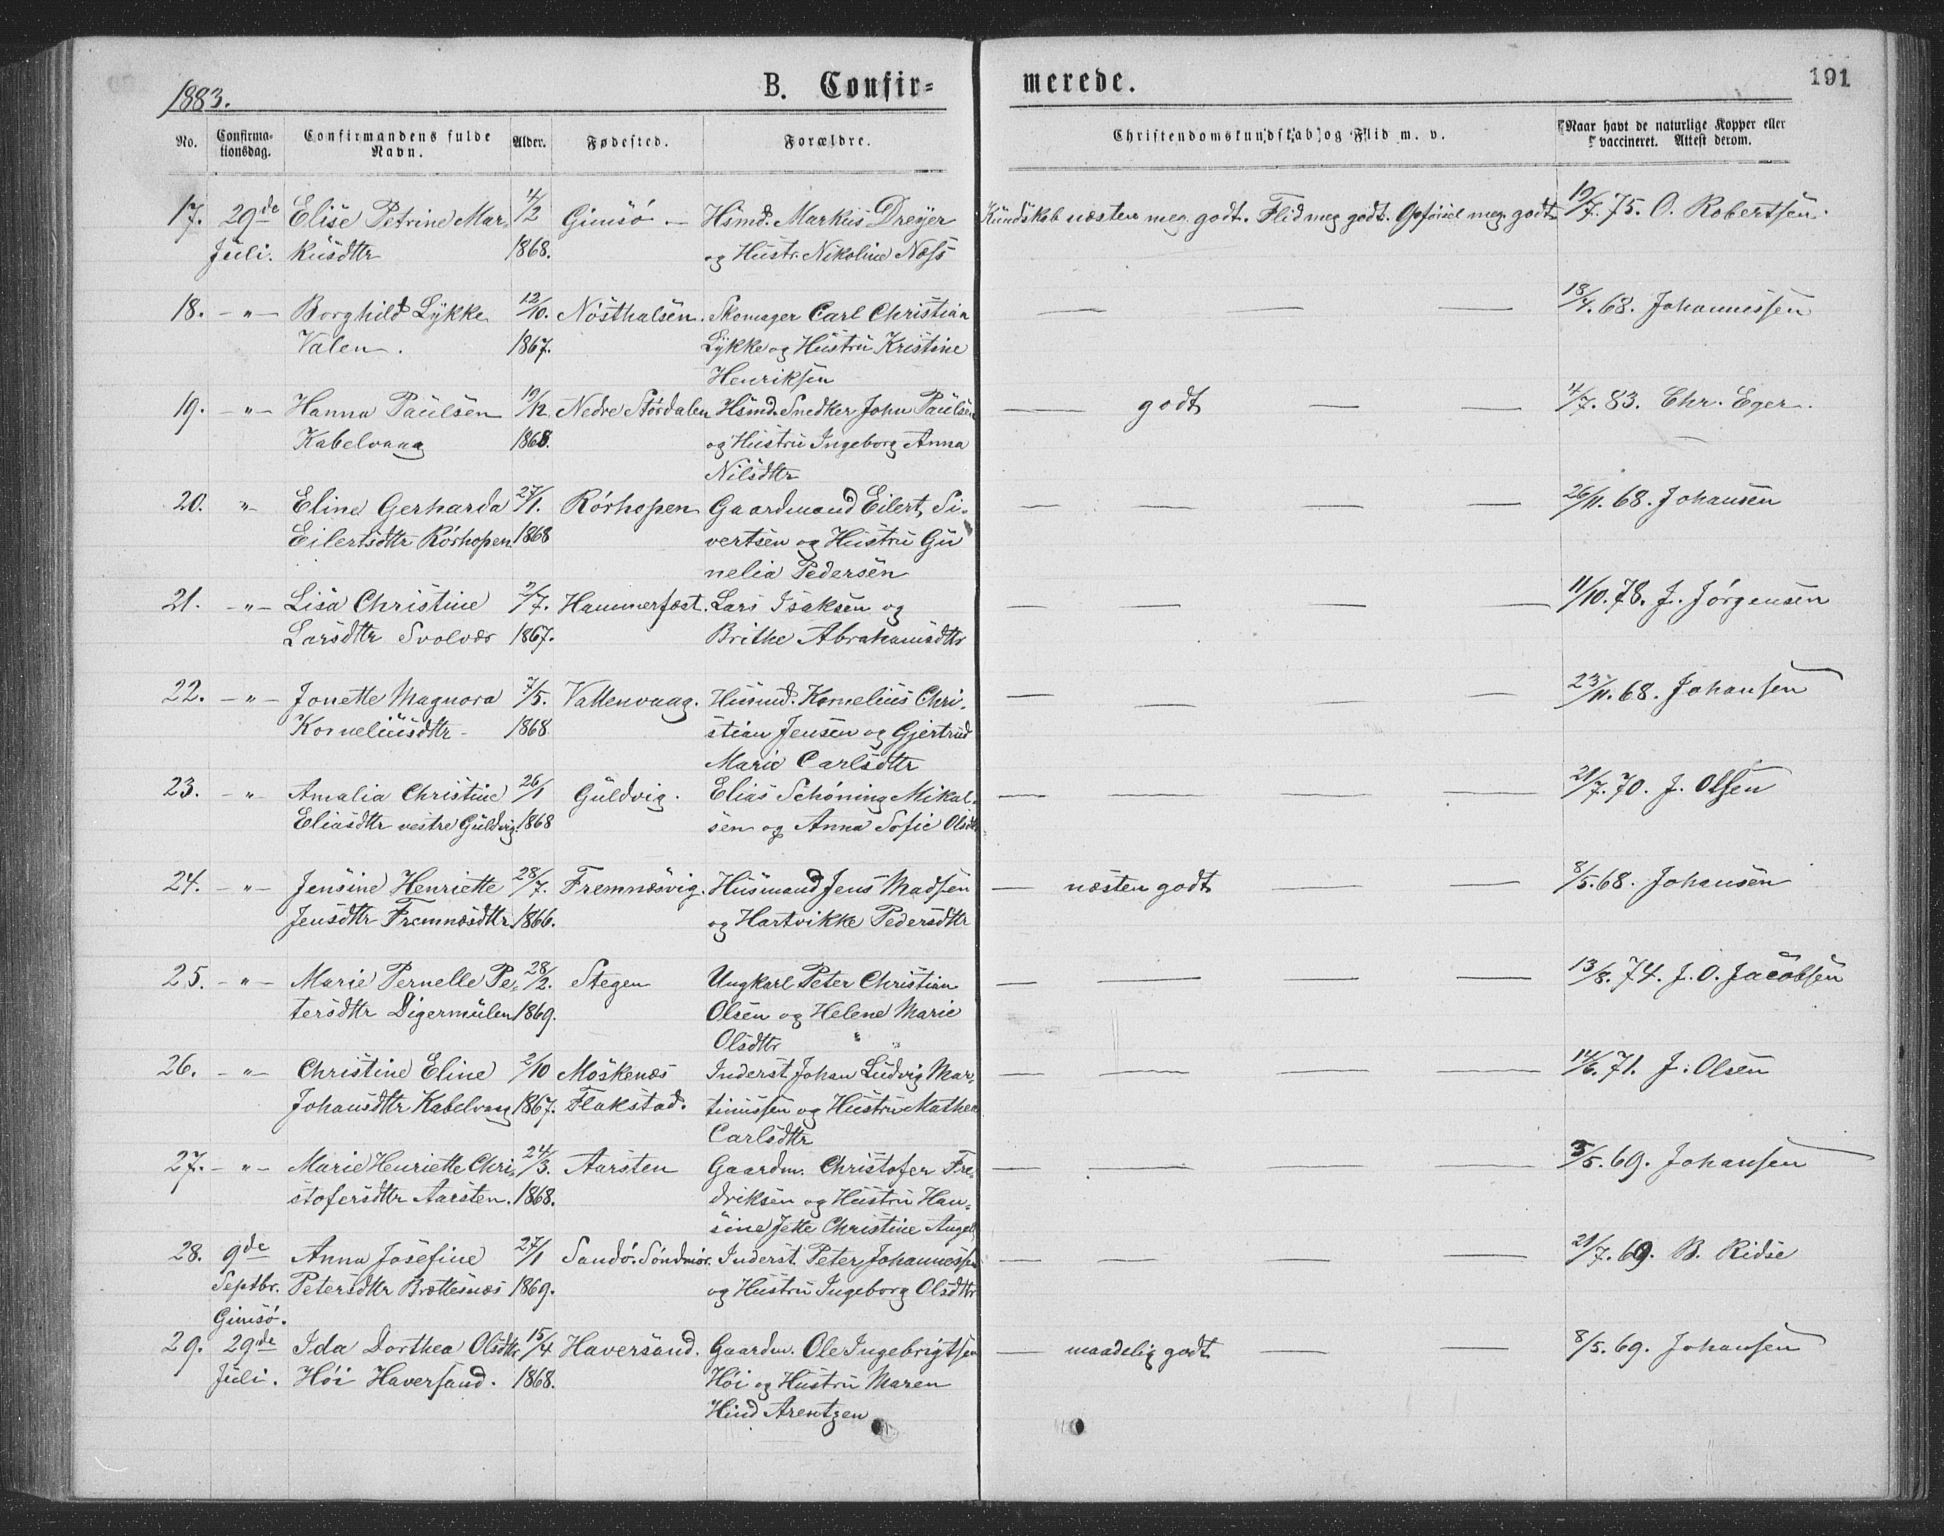 1883.
B. Confir-
merede.
191
No.
Confirma-
tionsdag.
Confirmandens fulde
Navn.
Alder.
Fødested.
Forældre.
Christendomskundskab og Flid m. v.
Naar havt de naturlige Kopper eller
vaccineret. Attest derom.
17. 29de Elise Petrine Mar- 4/2 Gimsö — Hsmd. Markus Dreyer Kundskab næsten meg. godt. Flid meg. godt. Opførsel meg. godt 19/7. 75. O. Robertsen.
Juli. kusdttr 1868. og Hustr. Nikoline Næss
18. — " — Borghild Lykke 12/10. Nösthalsen. Skomager Carl Christian — — — 18/4. 68. Johannessen
Valen. 1867. Lykke og Hustru Kristine
Henriksen
19. — " — Hanna Paulsen 19/12 Nedre Størdalen Hsmd. Snedker John Paulsen — godt — — 4/7. 83. Chr. Eger.
Kabelvaag 1868. og Hustru Ingeborg Anna
Nilsdttr
20. " — Eline Gerharda 27/1. Rörhopen Gaardmand Eilert Si- — — — — 26/11. 68. Johansen
Eilertsdttr Rörhopen 1868 vertsen og Hustru Gu
nelia Pedersen
21. — " — Lisa Christine 2/7. Hammerfæst. Lars Isaksen og — — — — 11/10. 78. J. Jörgensen
Larsdttr Svolvær 1867. Brithe Abrahamsdttr
22. — " — Jonette Magnora 7/5. Vattenvaag. Husmd. Kornelius Chri- — — — — 23/11. 68. Johansen
Korneliusdttr 1868 stian Jensen og Gjertrud
Marie Carlsdttr
23. — " — Amalia Christine 26/1 Guldvig. Elias Schöning Mikal- — — — — 21/7. 70. J. Olsen
Eliasdttr vestre Guldvig. 1868 sen og Anna Sofie Olsdttr
24. — " — Jensine Henriette 28/7. Fremnæsvig. Husmand Jens Madsen — næsten godt — — 8/5. 68. Johansen
Jensdttr Fremnæsdttr. 1866. og Hartvikke Pedersdttr
25. — " — Marie Pernelle Pe- 28/2. Stegen Ungkarl Peter Christian — — — — 13/8. 74. J. O. Jacobsen
tersdttr Digermulen 1869. Olsen og Helene Marie
Olsdttr " "
26. — " — Christine Eline 2/10 Moskenæs Inderst Johan Ludvig Mar- — — — — 14/6. 71. J. Olsen
Johansdttr Kabelvaag 1867. Flakstad. tinussen og Hustru Mathea
Carlsdttr
27. — " — Marie Henriette Chri- 24/3. Aarsten Gaardm. Christofer Fre- — — — — 3/5. 69. Johansen
stofersdttr Aarsten. 1868. driksen og Hustru Han-
sine Jette Christine Angel
28. 9de Anna Josefine 27/1 Sandö. Söndmör. Inderst Peter Johannessen — — — — 21/7. 69. B. Ridse
Septbr. Petersdttr Brettesnæs 1869. og Hustru Ingeborg Olsdttr
Gimsö.
29. 29de Ida Dorthea Olsdttr 15/4 Haversand. Gaardm. Ole Ingebrigtsen — maadelig godt — — 8/5. 69. Johansen
Juli. Höi Haversand. 1868. Höi og Hustru Maren
Hind Arentzen